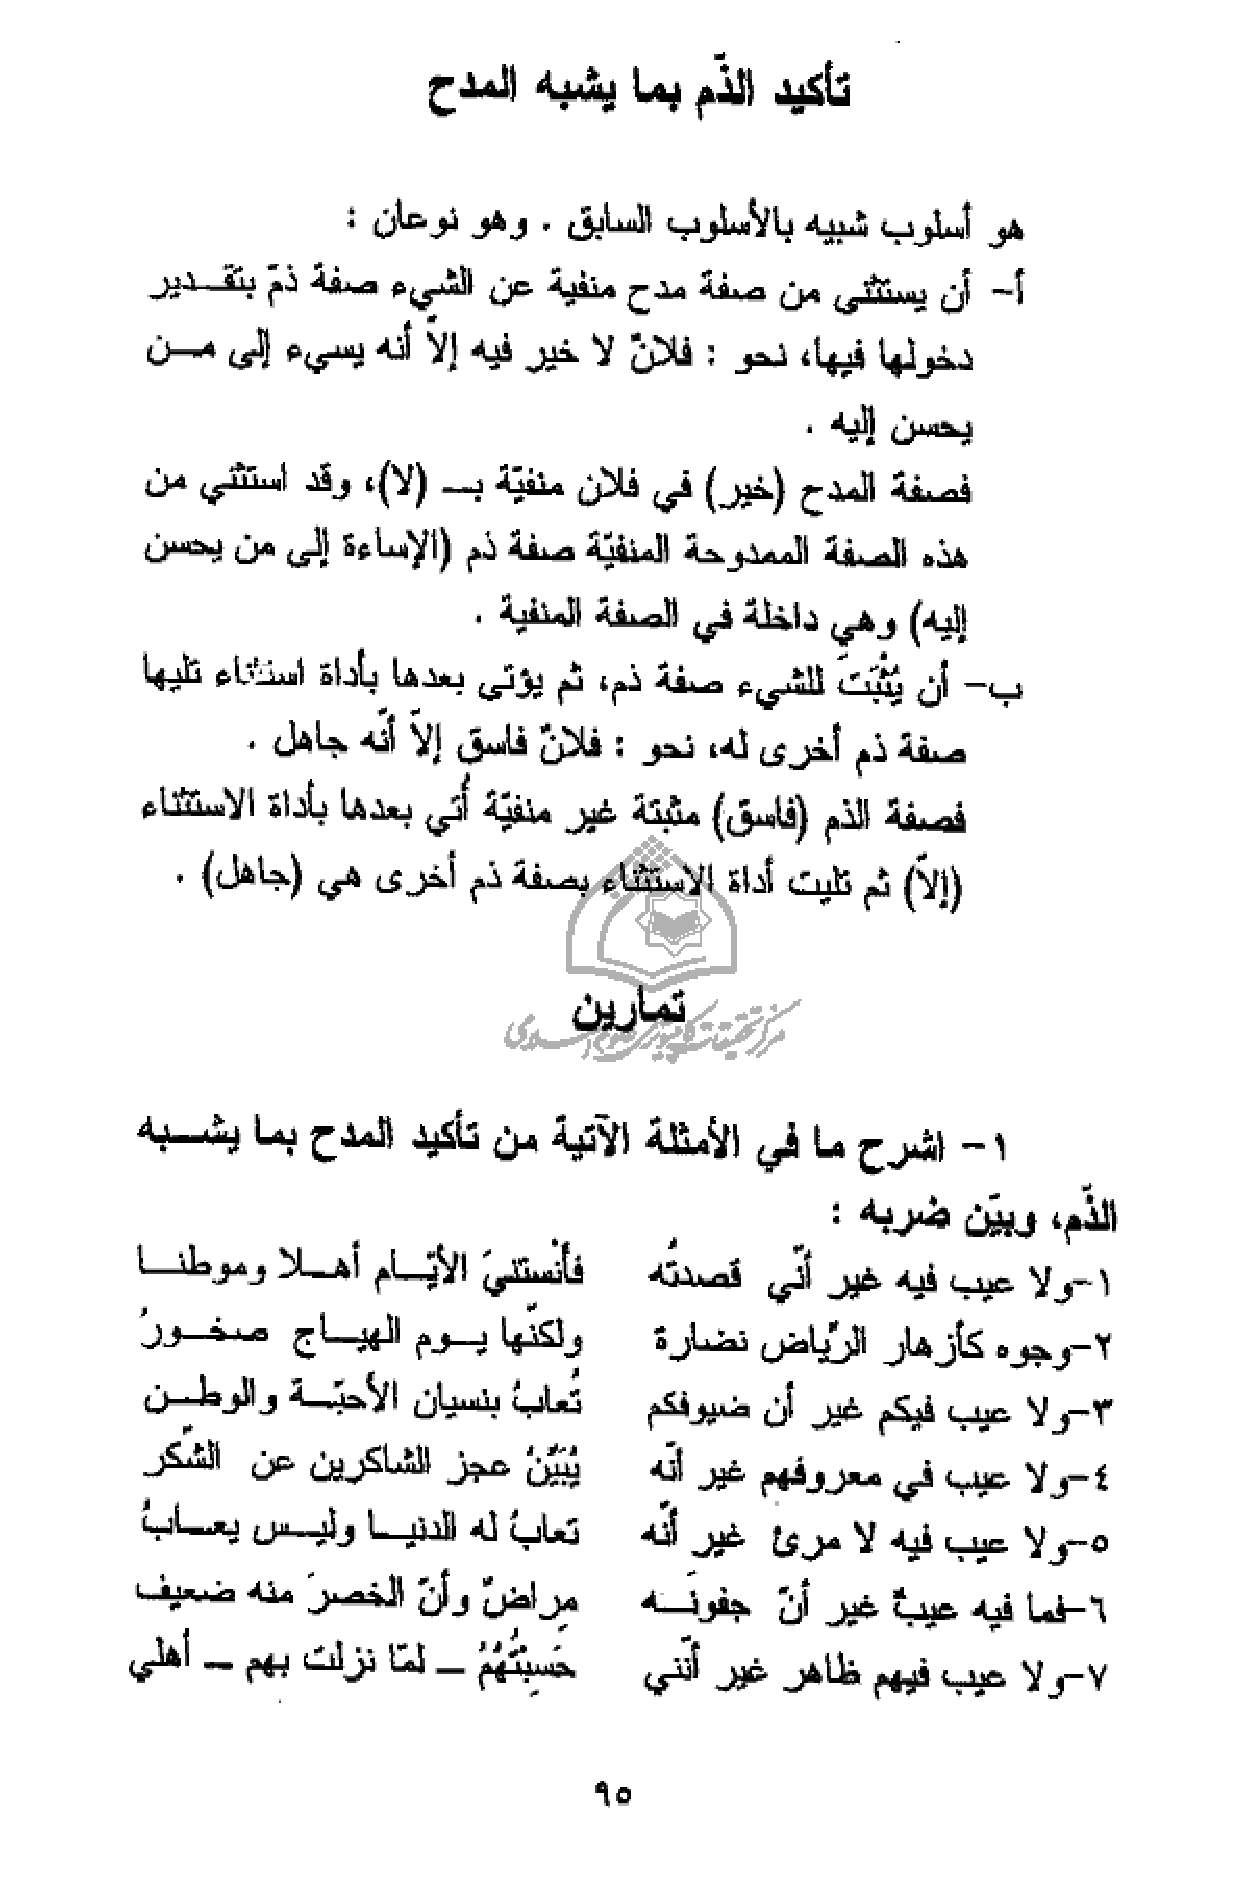 تأكيد الذّم بما يشبه المدح
هو أسلوب شبيه بالأسلوب السابق . وهو نوعان :
أ- أن يستثنى من صفة مدح منفية عن الشيء صفة ذمّ بتقـدير
دخولها فيها، نحو : فلانٌ لا خير فيه إلاّ أنه يسيء إلى مـن
يحسن إليه .
فصفة المدح (خير) في فلان منفيّة بـ (لا)، وقد استثني من
هذه الصفة الممدوحة المنفيّة صفة ذم (الإساءة إلى من يحسن
إليه) وهي داخلة في الصفة المنفية .
ب- أن يُثْبَتَ للشيء صفة ذم، ثم يؤتى بعدها بأداة استثناء تليها
صفة ذم أخرى له، نحو : فلانٌ فاسق إلاّ أنّه جاهل .
فصفة الذم (فاسق) مثبتة غير منفيّة أُتي بعدها بأداة الاستثناء
(إلاّ) ثم تليت أداة الاستثناء بصفة ذم أخرى هي (جاهل) .
تمارين
مركز تحقيقات كامپيوترى علوم اسلامى
١- اشرح ما في الأمثلة الآتية من تأكيد المدح بما يشـبه
الذّم، وبيّن ضربه :
١-ولا عيب فيه غير أنّي قصدتُه فأنْستنيَ الأيّـام أهـلا وموطنـا
٢-وجوه كأزهار الرّياض نضارة ولكنّها يـوم الهيـاج صخـورُ
٣-ولا عيب فيكم غير أن ضيوفكم تُعابُ بنسيان الأحبّـة والوطـن
٤-ولا عيب في معروفهم غير أنّه يُبَيِّنُ عجز الشاكرين عن الشّكر
٥-ولا عيب فيه لا مرئ غير أنّه تعابُ له الدنيـا وليـس يعـابُ
٦-فما فيه عيبٌ غير أنّ جفونَـه مِراضٌ وأنّ الخصرَ منه ضعيف
٧-ولا عيب فيهم ظاهر غير أنّني حَسِبْتُهُمُ ـ لمّا نزلت بهم ـ أهلي
٩٥